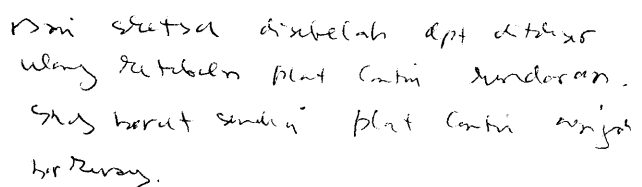 Dari sketsa disebelah dpt ditaksir
ulang ketebalan plat lantai kendaraan.
Shg berat sendiri plat lantai menjadi
berkurang.